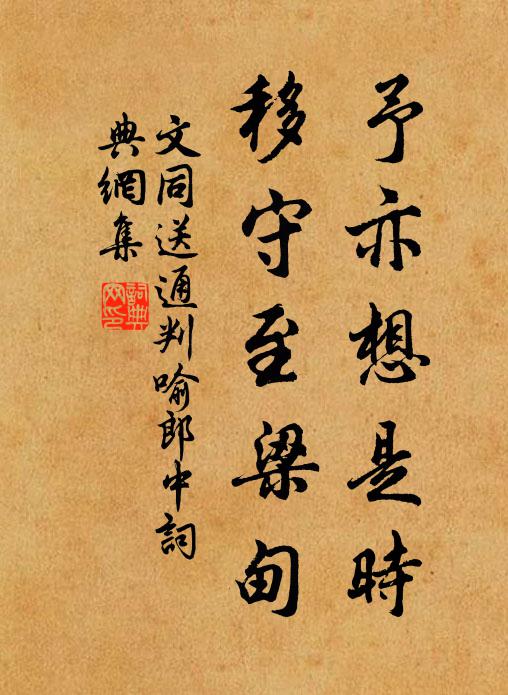 予亦想是時
移守至梁甸
文同送通判喻郎中詞
典網集
詞典網印